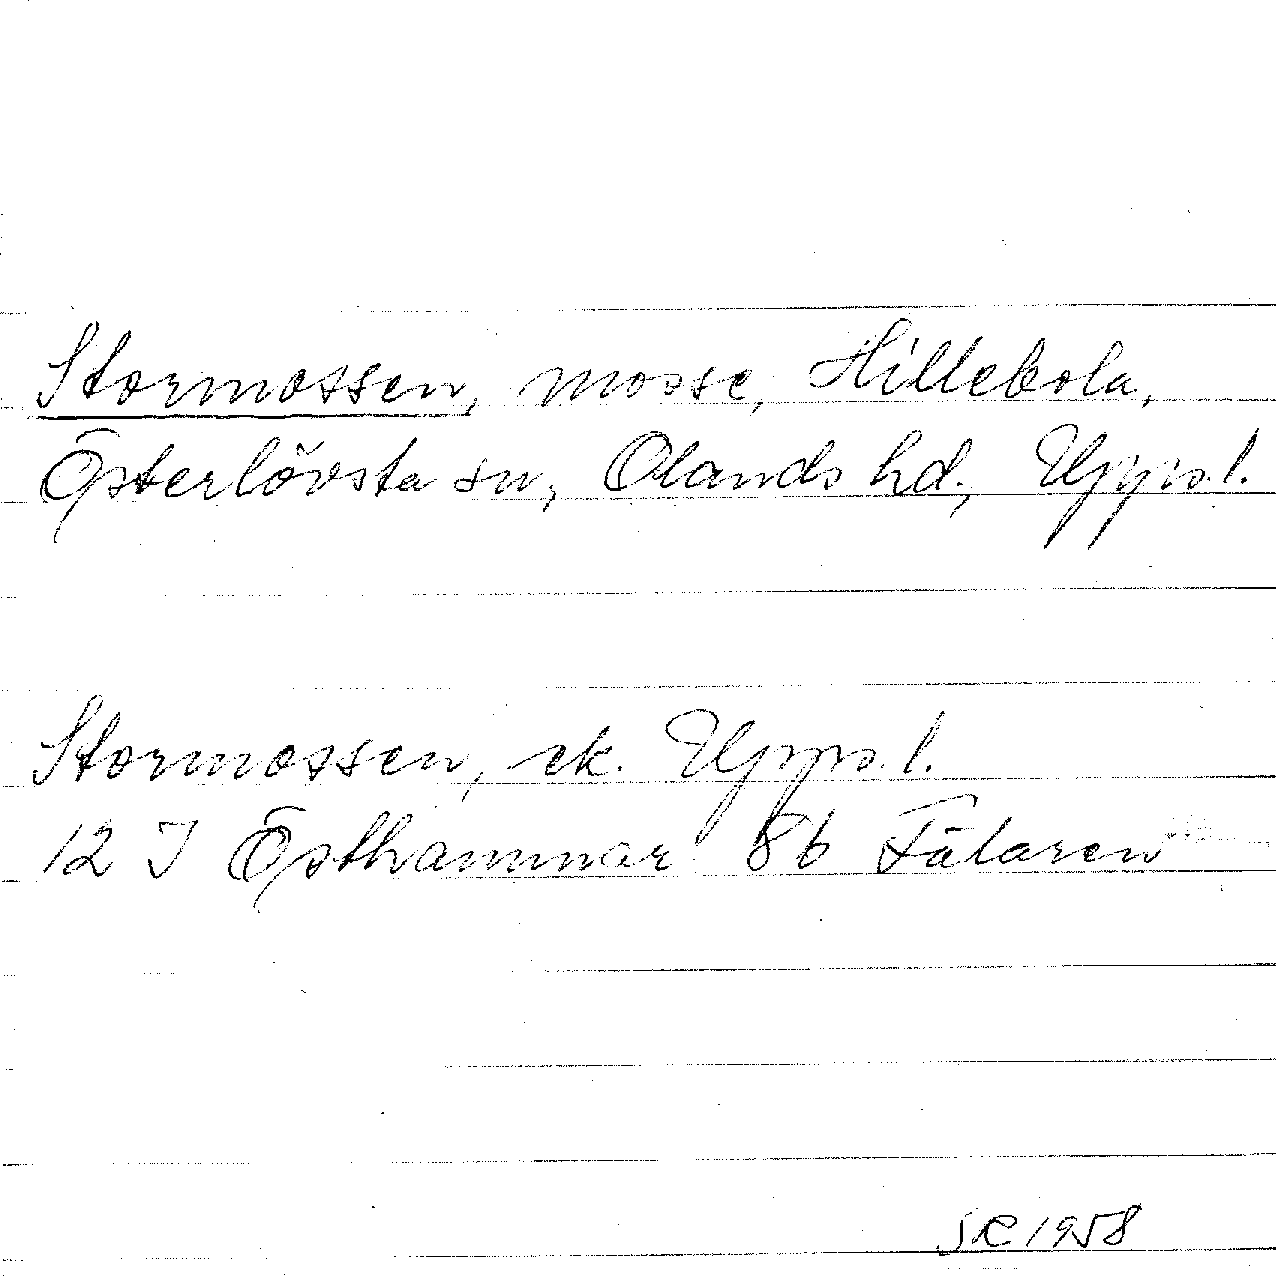 Stormossen, mosse, Hillebola,
Österlövsta sn, Olands hd., Upps.l.
Stormossen, ek. Upps.l.
12 I Östhammar 8b Fälaren
SR 1958